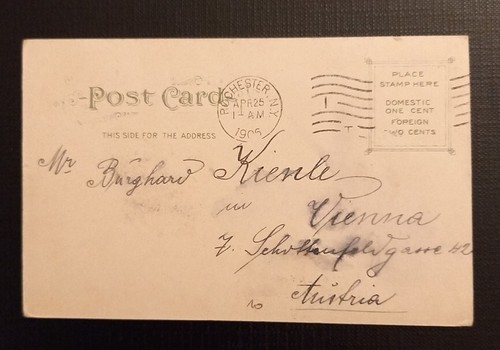 Post Card
THIS SIDE FOR THE ADDRESS
ROCHESTER, N.Y.
APR 25
1 AM
1906
PLACE
STAMP HERE
DOMESTIC
ONE CENT
FOREIGN
TWO CENTS
Mr Burghard Kienle
in
Vienna
7. Schottenfeldgasse 42
Austria